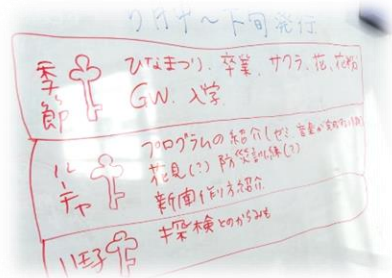 下旬発行
季節
ひなまつり、卒業、サクラ、花、花粉
GW、入学
ルーチャ
プログラムの紹介
花見(?) 防災訓練(?)
新聞作り方紹介
八王子
探検とのからみも